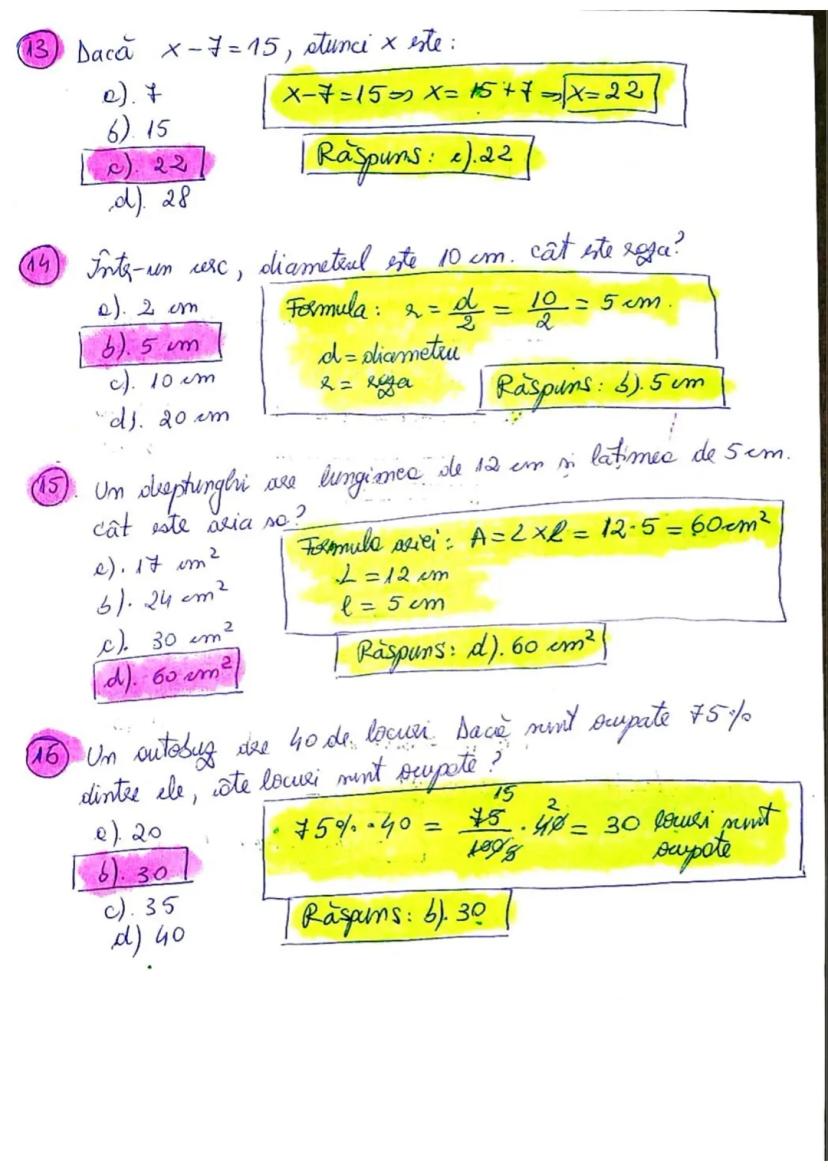 13 Dacă x-7=15, atunci x este:
a). 7
x-7=15 => x= 15+7 => x=22
b). 15
c). 22
Răspuns: c).22
d). 28
14 Într-un cerc, diametrul este 10 cm. cât este raza?
a). 2 cm
Formula: r = d/2 = 10/2 = 5 cm.
b). 5 cm
d = diametru
c). 10 cm
r = raza
Răspuns: b).5 cm
d). 20 cm
15. Un dreptunghi are lungimea de 12 cm și lațimea de 5 cm.
cât este aria sa?
Formula ariei: A=L×l = 12·5 = 60cm²
a). 17 cm²
L = 12 cm
b). 24 cm²
l = 5 cm
c). 30 cm²
Răspuns: d). 60 cm²
d). 60 cm²
16 Un autobuz are 40 de locuri. Dacă sunt ocupate 75%
dintre ele, câte locuri sunt ocupate?
a). 20
75% · 40 = 75/100 · 40 = 30 locuri sunt
15 2
ocupate
b). 30
c). 35
Răspuns: b). 30
d) 40